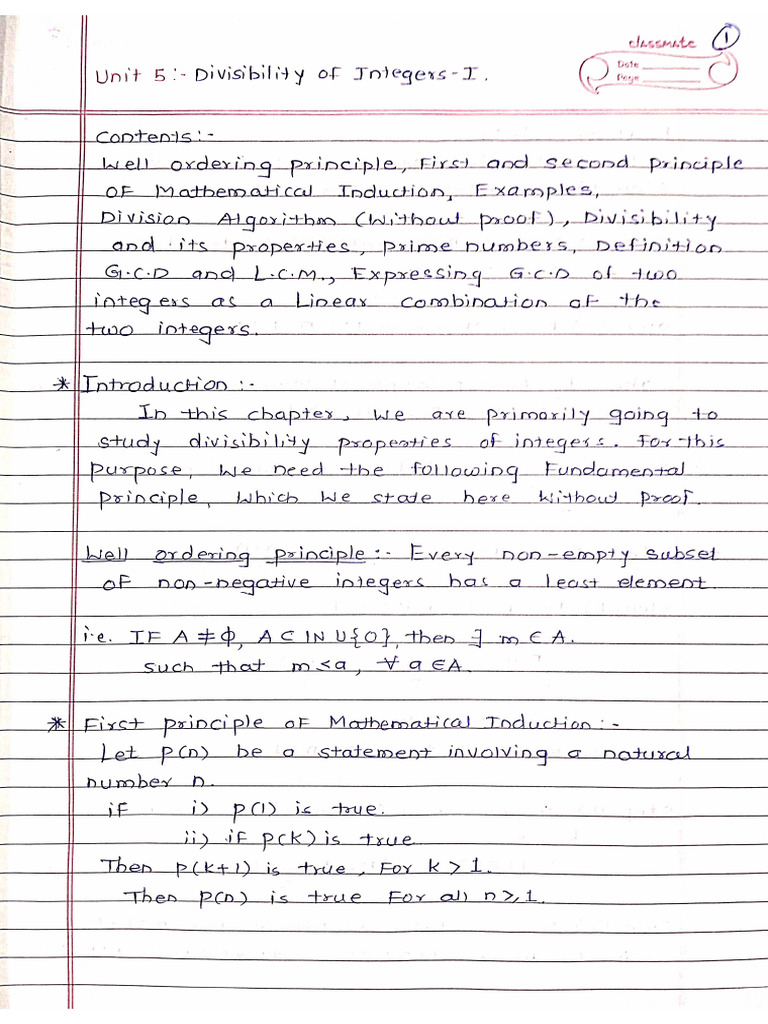 classmate 1
Date
Page
Unit 5:- Divisibility of Integers-I.
Contents:-
Well ordering principle, First and second principle
of Mathematical Induction, Examples,
Division Algorithm (Without proof), Divisibility
and its properties, prime numbers, Definition
G.C.D and L.C.M., Expressing G.C.D of two
integers as a Linear combination of the
two integers.
* Introduction:-
In this chapter, we are primarily going to
study divisibility properties of integers. For this
purpose, we need the following Fundamental
principle, which we state here without proof.
Well ordering principle:- Every non-empty subset
of non-negative integers has a least element.
i.e. IF A ≠ Φ, A ⊂ IN ∪ {0}, then ∃ m ∈ A.
such that m < a, ∀ a ∈ A.
* First principle of Mathematical Induction:-
Let P(n) be a statement involving a natural
number n.
if i) P(1) is true.
ii) if P(k) is true
Then P(k+1) is true, For k > 1.
Then P(n) is true For all n ≥ 1.